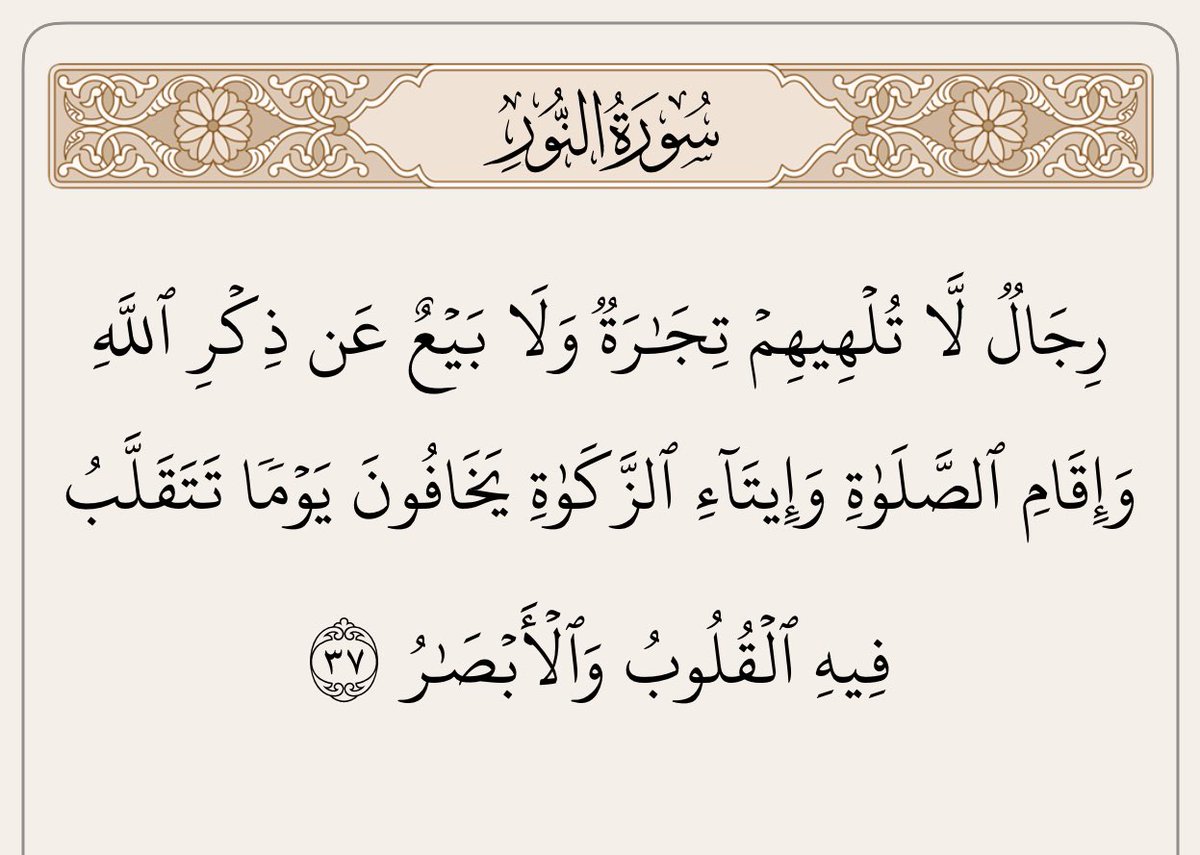 سُورَةُ النُّورِ
رِجَالٞ لَّا تُلۡهِيهِمۡ تِجَٰرَةٞ وَلَا بَيۡعٌ عَن ذِكۡرِ ٱللَّهِ
وَإِقَامِ ٱلصَّلَوٰةِ وَإِيتَآءِ ٱلزَّكَوٰةِ يَخَافُونَ يَوۡمٗا تَتَقَلَّبُ
فِيهِ ٱلۡقُلُوبُ وَٱلۡأَبۡصَٰرُ ٣٧